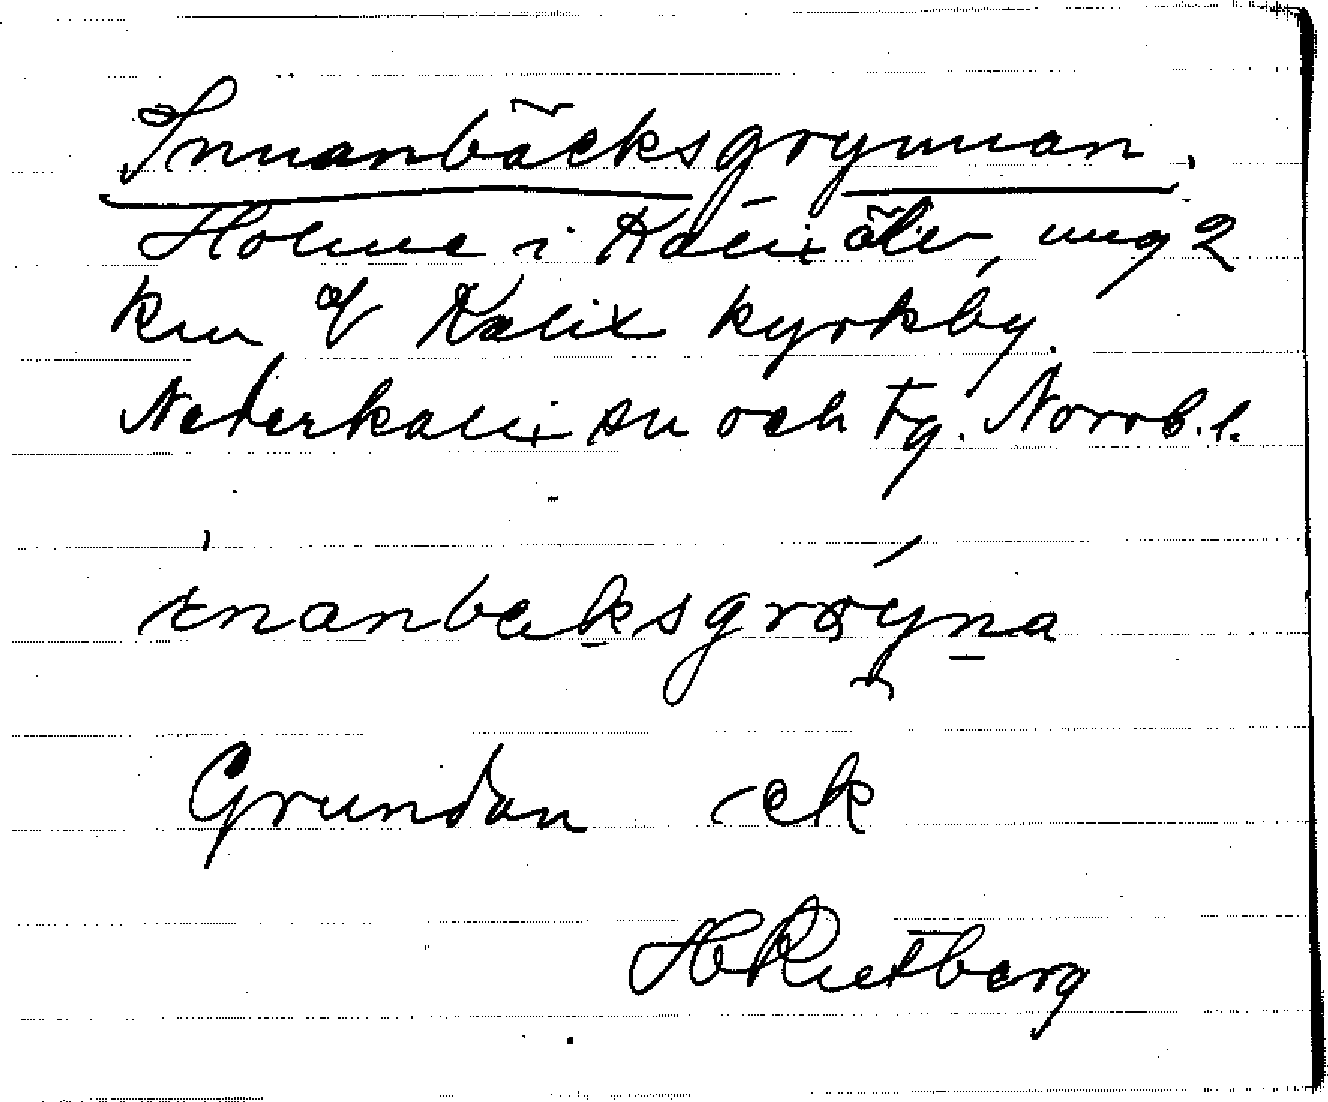 Innanbäcksgrynnan.
Holme i Kalix älv, ung 2
km Kalix kyrkby.
Nederkalix sn och tg. Norrb. l.
ınanbɛksgrøyna
Grundon ek
H Rutberg